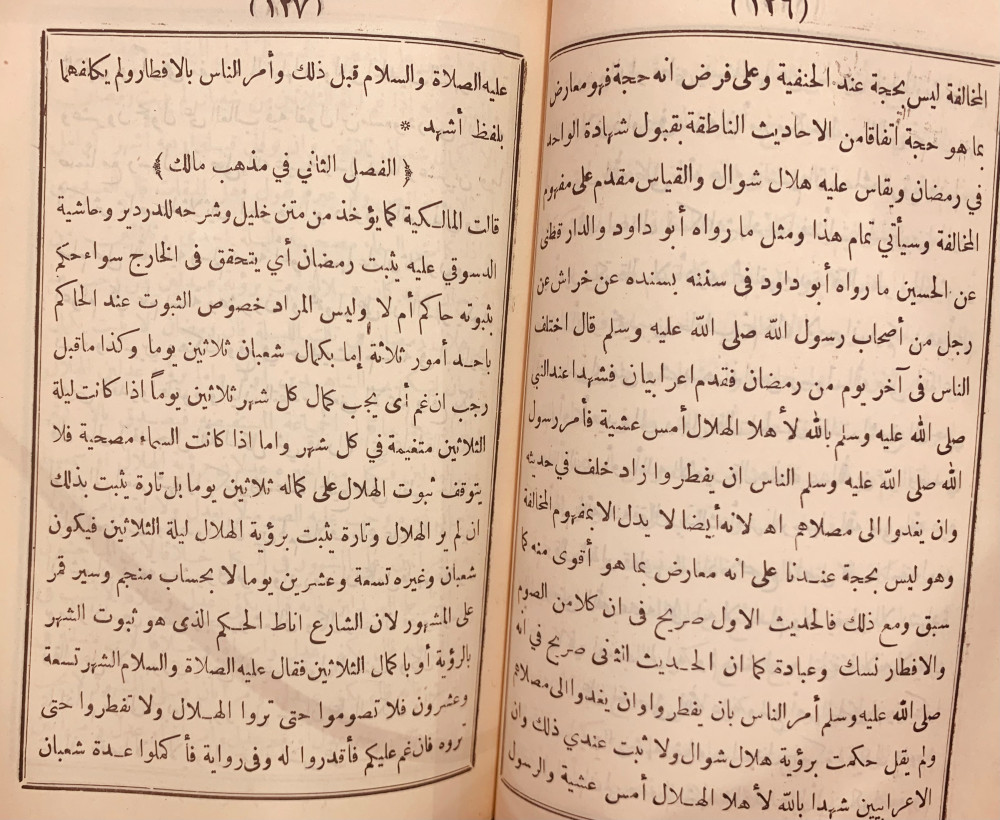 (١٢٦)
المخالفة ليس بحجة عند الحنفية وعلى فرض انه حجة فهو معارض
بما هو حجة أتفاقا من الاحاديث الناطقة بقبول شهادة الواحد
في رمضان ويقاس عليه هلال شوال والقياس مقدم على مفهوم
المخالفة وسيأتي تمام هذا ومثل ما رواه أبو داود والدارقطنى
عن الحسين ما رواه أبو داود فى سننه بسنده عن خراش عن
رجل من أصحاب رسول الله صلى الله عليه وسلم قال اختلف
الناس فى آخر يوم من رمضان فقدم اعرابيان فشهدا عند النبي
صلى الله عليه وسلم بالله لأهلا الهلال أمس عشية فأمر رسول
الله صلى الله عليه وسلم الناس ان يفطروا زاد خلف في حديثه
وان يغدوا الى مصلاهم اه لانه أيضا لا يدل الا بمفهوم المخالفة
وهو ليس بحجة عندنا على انه معارض بما هو أقوى منه كما
سبق ومع ذلك فالحديث الاول صريح فى ان كلا من الصوم
والافطار نسك وعبادة كما ان الحديث الثانى صريح في انه
صلى الله عليه وسلم أمر الناس بان يفطروا وان يغدوا الى مصلاهم
ولم يقل حكمت برؤية هلال شوال ولا ثبت عندي ذلك وان
الاعرابيين شهدا بالله لأهلا الهلال أمس عشية والرسول
(١٢٧)
عليه الصلاة والسلام قبل ذلك وأمر الناس بالافطار ولم يكلفهما
بلفظ أشهد *
﴿ الفصل الثاني في مذهب مالك ﴾
قالت المالكية كما يؤخذ من متن خليل وشرحه للدردير وحاشية
الدسوقي عليه يثبت رمضان أي يتحقق فى الخارج سواء حكم
بثبوته حاكم أم لا وليس المراد خصوص الثبوت عند الحاكم
باحد أمور ثلاثة إما بكمال شعبان ثلاثين يوما وكذا ما قبل
رجب ان غم أى يجب كمال كل شهر ثلاثين يوماً اذا كانت ليلة
الثلاثين متغيمة في كل شهر واما اذا كانت السماء مصحية فلا
يتوقف ثبوت الهلال على كماله ثلاثين يوما بل تارة يثبت بذلك
ان لم ير الهلال وتارة يثبت برؤية الهلال ليلة الثلاثين فيكون
شعبان وغيره تسعة وعشرين يوما لا بحساب منجم وسير قمر
على المشهور لان الشارع اناط الحكم الذى هو ثبوت الشهر
بالرؤية أو باكمال الثلاثين فقال عليه الصلاة والسلام الشهر تسعة
وعشرون فلا تصوموا حتى تروا الهلال ولا تفطروا حتى
تروه فان غم عليكم فأقدروا له وفى رواية فأكملوا عدة شعبان